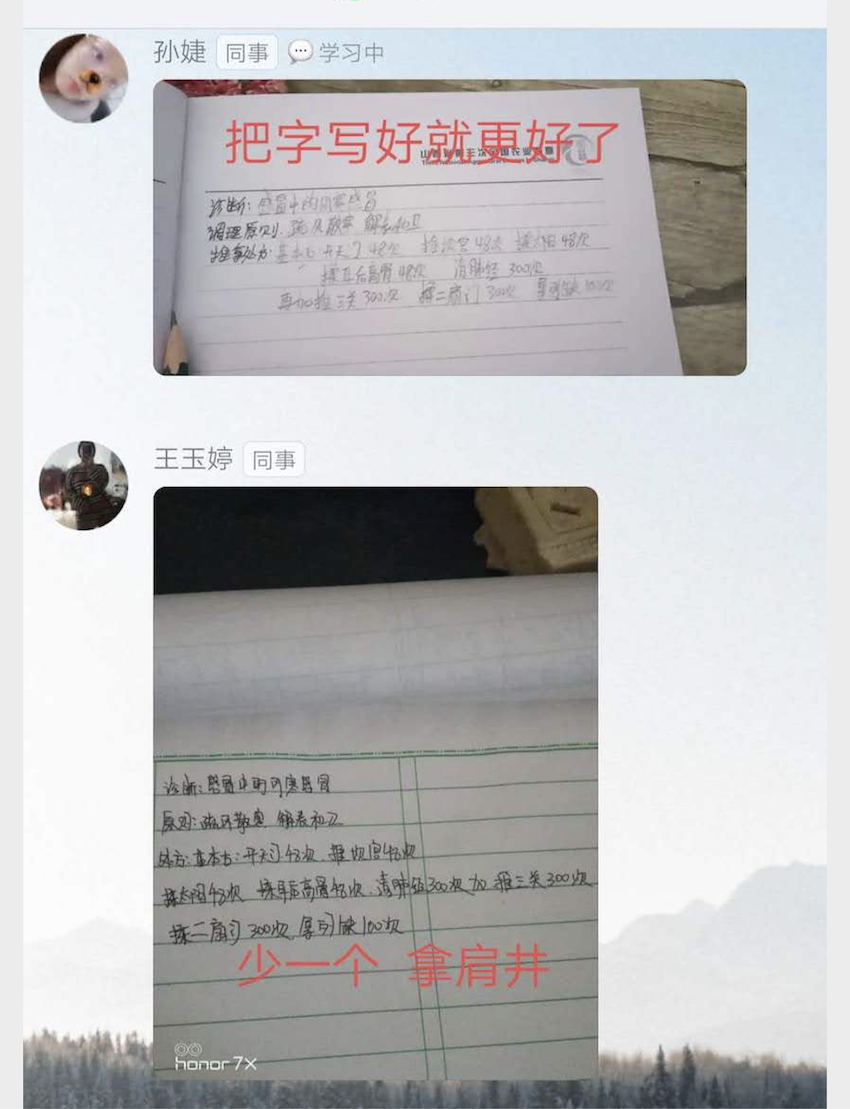 孙婕 同事 学习中
把字写好就更好了
诊断：感冒中的风寒感冒
调理原则：疏风散寒 解表和卫
推拿处方：基本方：开天门48次 推坎宫48次 揉太阳48次
揉耳后高骨48次 清肺经300次
再加推三关300次 揉二扇门300次 拿列缺100次
王玉婷 同事
诊断：感冒中的风寒感冒
原则：疏风散寒 解表和卫
处方：基本方：开天门48次，推坎宫48次
揉太阳48次 揉耳后高骨48次，清肺经300次 加 推三关300次
揉二扇门 300次，拿列缺100次
少一个 拿肩井
honor 7X